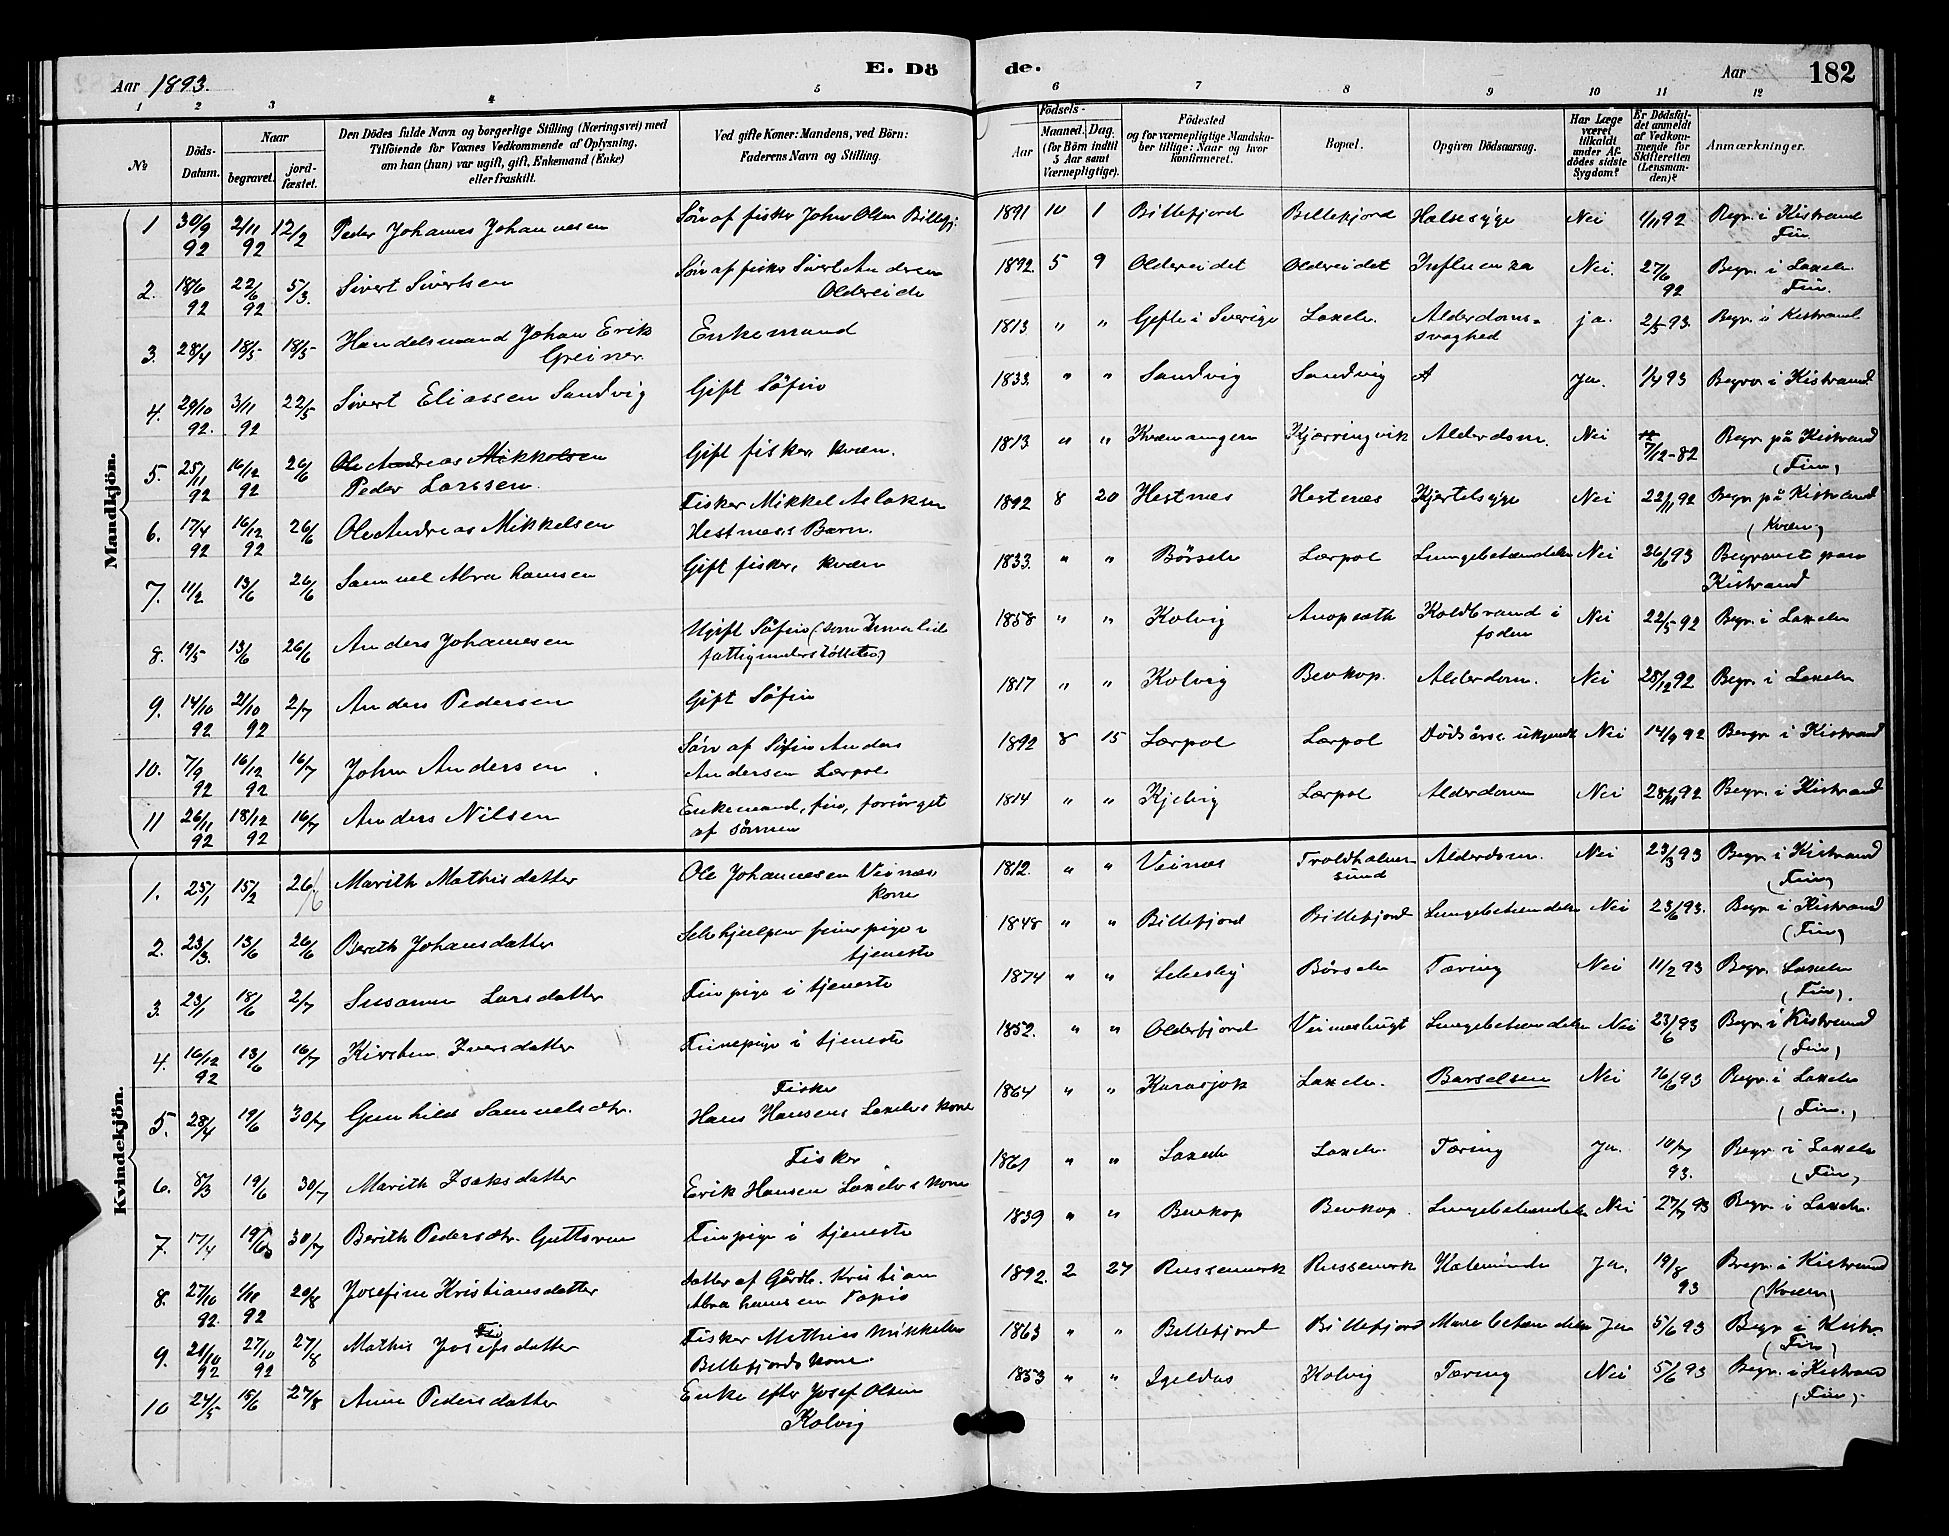 Aar 1893.
E. Dö de.
Aar 182
1 2 3 4 5 6 7 8 9 10 11 12
№
Döds-Datum.
Naar begravet. jordfæstet.
Den Dödes fulde Navn og borgerlige Stilling (Næringsvei) med Tilföiende for Voxnes Vedkommende af Oplysning, om han (hun) var ugift, gift, Enkemand (Enke) eller fraskilt.
Ved gifte Koner: Mandens, ved Börn: Faderens Navn og Stilling.
Födsels-
Aar Maaned. Dag. (for Börn indtil 5 Aar samt Værnepligtige).
Födested og for værnepligtige Mandskaber tillige: Naar og hvor konfirmeret.
Bopæl.
Opgiven Dödsaarsag.
Har Læge været tilkaldt under Afdödes sidste Sygdom?
Er Dödsfaldet anmeldt af Vedkommende for Skifteretten (Lensmanden)?
Anmærkninger.
Mandkjön.
1 30/9 92 2/11 92 12/2 Peder Johannes Johannesen Sön af fisker John Olsen Billefj. 1891 10 1 Billefjord Billefjord Halsesyge Nei 1/11 92 Begr. i Kistrand Fin.
2. 18/6 92 22/6 92 5/3. Sivert Sivertsen Sön af fisker Sivert Andersen Oldereide 1892. 5 9 Oldereidet Oldereidet Influenza Nei. 27/6 92 Begr. i Laxelv Fin.
3. 28/4 18/5 18/5 Handelsmand Johan Erik Greiner. Enkemand 1813 " " Gefle i Sverige Laxelv. Alderdoms-svaghed ja. 2/5 93. Begr. i Kistrand
4. 29/10 92. 3/11 92 22/5 Sivert Eliassen Sandvig Gift Söfin 1833. " " Sandvig Sandvig Ja. 1/4 93 Begrav i Kistrand
5. 25/11 92 16/12 92 26/6 Ole Andreas Mikkelsen Peder Larssen. Gift fisker, kvæn. 1813 " " Kvænangen Kjærringvik Alderdom. Nei 7/12-82 Begr. på Kistrand (Fin)
6. 17/4 92 16/12 92 26/6 Ole Andreas Mikkelsen Fisker Mikkel Aslaksen Hestnæss Barn. 1892 8 20 Hestnæs Hestnæs Kjertelsyge Nei 22/11 92 Begr. på Kistrand (Kvæn)
7. 11/2 13/6 26/6 Samuel Abrahamsen Gift fisker, kvæn 1833. " " Börselv Lærpol Lungebetændelse Nei 26/6 93 Begravet paa Kistrand
8. 19/5 13/6 26/6 Anders Johannesen Ugift Söfin 1858 " " Kolvig Koldbrand i foden Nei 22/5 92 Begr. i Laxelv
9. 14/10 92 21/10 92 2/7 Anders Pedersen Gift Söfin 1817 " " Kolvig Bevkop. Alderdom. Nei 28/12 92 Begr. i Laxelv
10. 7/9 92 16/12 92 16/7 John Andersen Sön af Söfin Anders Andersen Lærpol. 1892 8 15 Lærpol Lærpol Dödsårs. ukjendt Nei 14/9 92 Begr. i Kistrand
11 26/11 92 18/12 92 16/7 Anders Nilsen Enkemand, fin, forsörget af sönnen 1814 " " Kjelvig Lærpol Alderdom Nei 28/11 92 Begr. i Kistrand
Kvindekjön.
1. 25/1 15/2 26/6 Marith Mathisdatter Ole Johannesen Veinæs kone 1812. " " Veinæs Troldholmsund Alderdom. Nei 23/3 93 Begr. i Kistrand (Fin)
2. 23/3. 13/6 26/6 Berith Johansdatter Selvhjulpen finnepige i tjeneste 1848 " " Billefjord Billefjord Lungebetændelse Nei 23/6 93. Begr. i Kistrand (Fin)
3. 23/1 18/6 2/7 Susanna Larsdatter Finpige i tjeneste 1874 " " Lebesby Börselv Tæring Nei 11/2 93 Begr. Laxelv (Fin).
4. 16/12 92 13/6 16/7 Kirsten Iversdatter Finnepige i tjeneste 1852. " " Olderfjord Veinesbugt Lungebetændelse Nei 23/6 93 Begr. i Kistrand (Fin)
5. 28/4 19/6 30/7 Gunhild Samuelsdtr. Fisker Hans Hansens Laxelvs kone 1864 " " Karasjok Laxelv. Barselseng Nei 16/6 93 Begr. i Laxelv (Fin.)
6. 8/3 19/6 30/7 Marith Isaksdatter Fisker Erik Hansen Laxelvs kone 1861 " " Laxelv Laxelv. Tæring Ja. 10/7 93. Begr. i Laxelv (Fin)
7. 17/4 19/6 30/7 Berith Pedersdtr. Guttorm Finpige i tjeneste 1839 " " Bevkop Bevkop. Lungebetændelse Nei 27/7 93 Begr. i Laxelv.
8. 27/10 92. 1/11 92 20/8 Josefine Kristiansdatter Datter af Gårdb. Kristian Abrahamsen Tapio 1892. 2 27 Russemark Russemark Ja. 19/8 93 Begr. i Kistrand (Kvæn)
9. 21/10 92 27/10 92 27/8 Mathis Josefsdatter Fisker Mathis Mikkelsen Billefjords kone. 1863 " " Billefjord Billefjord Mavebetændelse Ja 5/6 93 Begr. i Kistr. (Fin)
10 24/5 15/6 27/8 Anne Pedersdatter Enke efter Josef Olsen Kolvig 1853 " " Igeldas Kolvig Tæring Nei 5/6 93 Begr. i Kistrand (Fin)